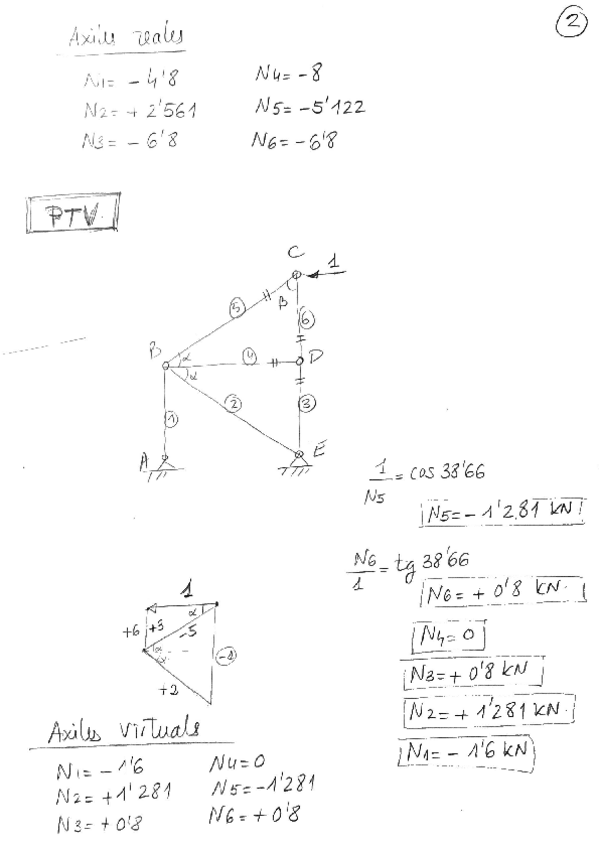 2
Axiles reales
N1= -4'8 N4= -8
N2= +2'561 N5= -5'122
N3= -6'8 N6= -6'8
PTV
C
1
β
5
6
B
α
4
D
α
1
2
3
A
E
1/N5 = cos 38'66
N5= -1'281 kN
N6/1 = tg 38'66
N6= +0'8 kN
N4= 0
N3= +0'8 kN
N2= +1'281 kN
N1= -1'6 kN
1
α
+6 +3 -5
α
α
+2
Axiles virtuals
N1= -1'6 N4= 0
N2= +1'281 N5= -1'281
N3= +0'8 N6= +0'8